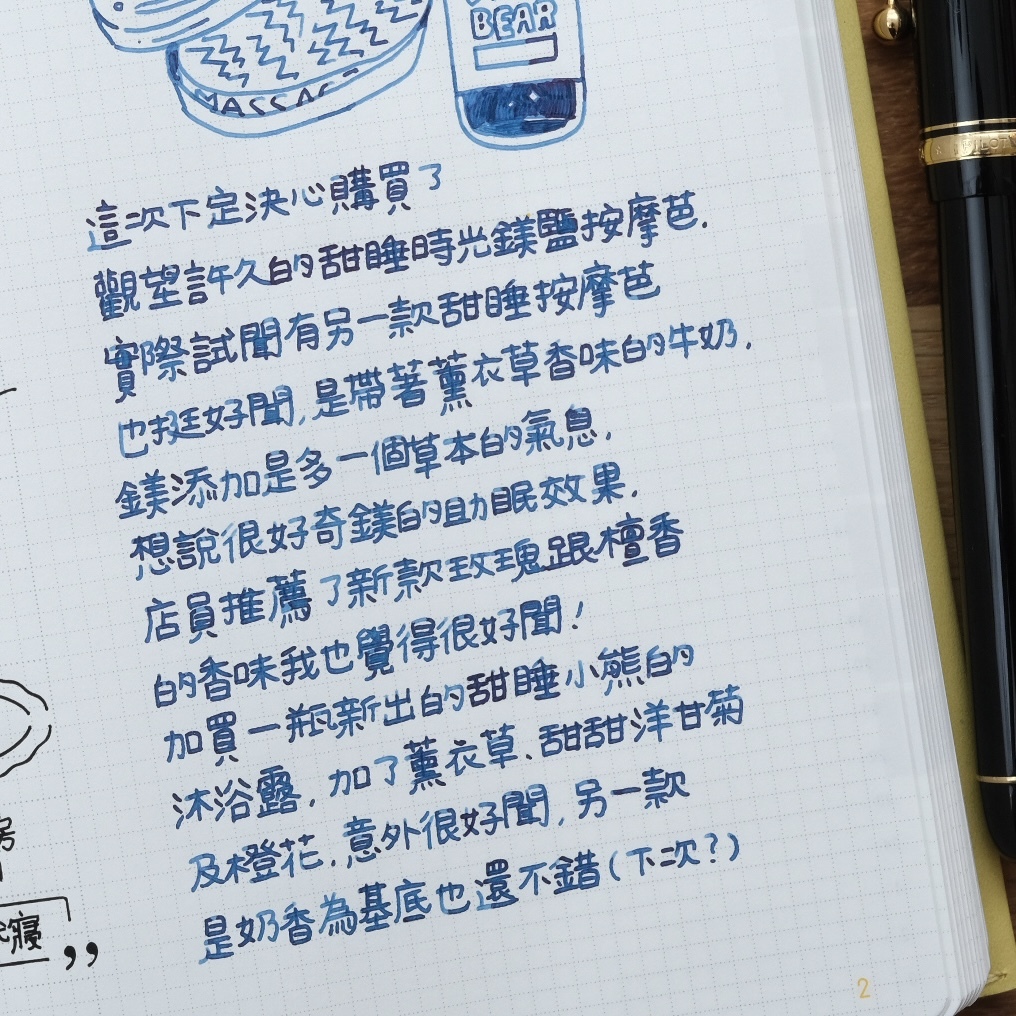 BEAR
MASSAG
PILOT
這次下定決心購買了
觀望許久的甜睡時光鎂鹽按摩芭.
實際試聞有另一款甜睡按摩芭
也挺好聞,是帶著薰衣草香味的牛奶.
鎂添加是多一個草本的氣息.
想說很好奇鎂的助眠效果.
店員推薦了新款玫瑰跟檀香
的香味我也覺得很好聞!
加買一瓶新出的甜睡小熊的
沐浴露.加了薰衣草、甜甜洋甘菊
及橙花.意外很好聞.另一款
是奶香為基底也還不錯(下次?)
寢”
2